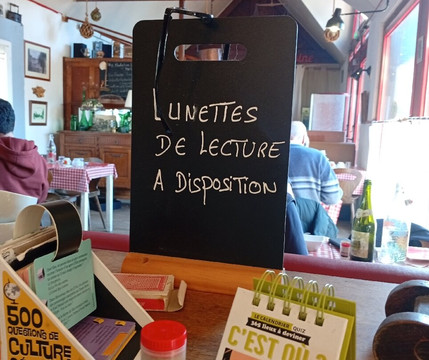 LUNETTES
DE LECTURE
A DISPOSITION
500
QUESTIONS DE
CULTURE
LE CALENDRIER QUIZ
366 lieux à deviner
C'EST OÙ !